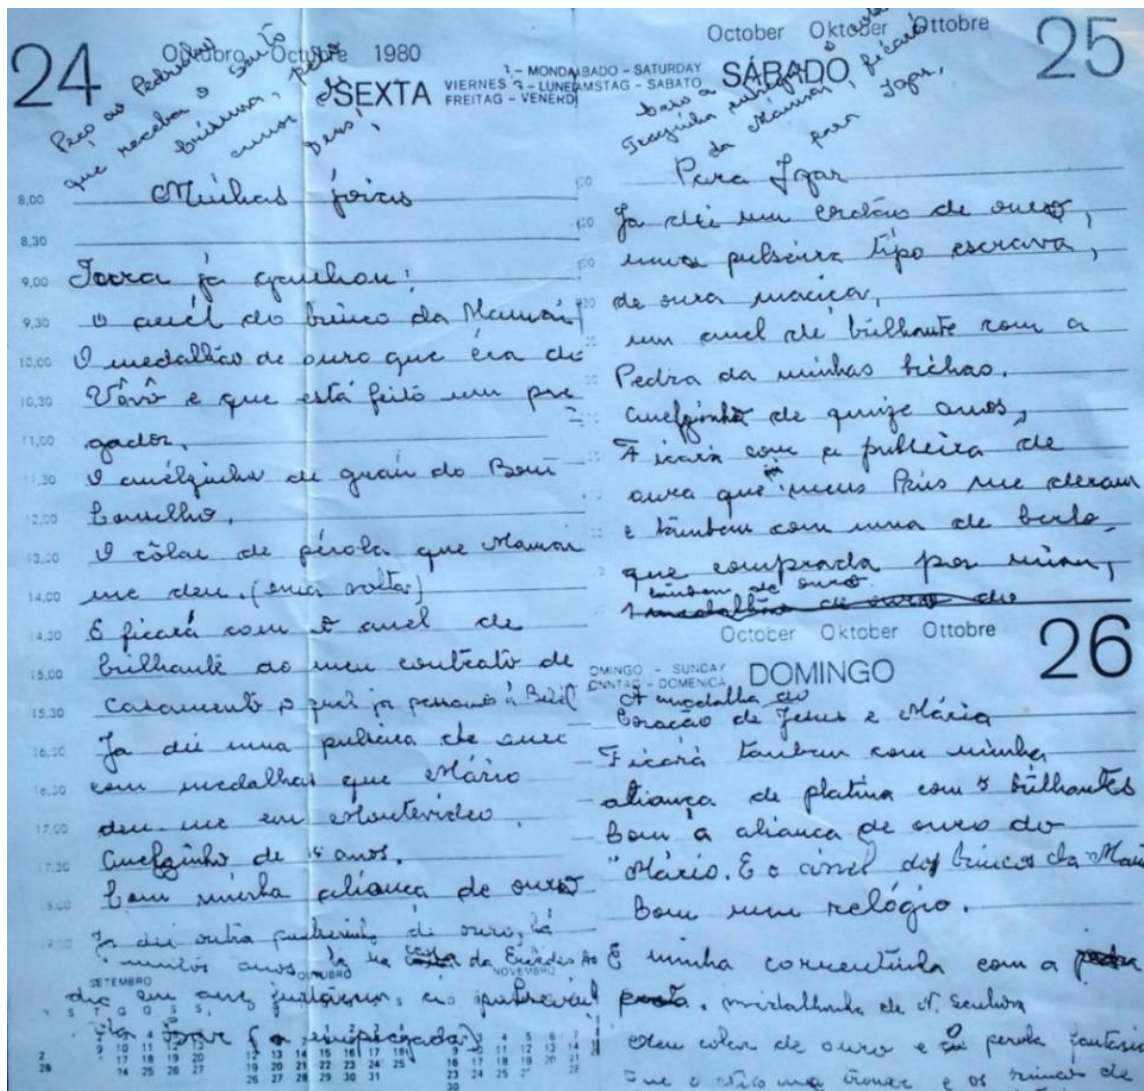 24
Outubro Octubre 1980
SEXTA
VIERNES
FREITAG - VENERDI
Peço ao Pedrinho
que receba o Santo
crisma, pelo
amor
Deus!
8,00 Minhas joias
8,30
9,00 já ganhou:
9,30 O anel do brinco da Mamãe
10,00 O medalhão de ouro que éra do
10,30 Vôvô e que está feito um pre
11,00 gador.
11,30 O anélzinho de grau do Bom
12,00 Conselho.
13,00 O côlar de pérola que Mamãe
14,00 me deu. (uma volta)
14,30 E ficará com o anel de
15,00 brilhante do meu contrato de
15,30 casamento o qual já
16,00 Ja dei uma pulseira de ouro
16,30 com medalhas que Mário
17,00 deu-me em Montevideo.
17,30 Anelzinho de 15 anos.
Com minha aliança de ouro
Ja dei outra de ouro, há
muitos anos, da
SETEMBRO OUTUBRO NOVEMBRO
October Oktober Ottobre
25
MONDA BADO - SATURDAY
LUNE AMSTAG - SABATO
SÁBADO
da Mamãe, ficará
para Igar,
Para Igar
Ja dei um cordão de ouro,
uma pulseira tipo escrava,
de oura maciça,
um anel de brilhante com a
Pedra da minhas bichas.
Anelzinho de quize anos,
Ficará com a pulseira de
oura que meus Pais me deram
e tâmbem com uma de berlo-
que comprada por mim,
tâmbem de ouro.
October Oktober Ottobre
26
OMINGO - SUNDAY
ONNTAG - DOMENICA
DOMINGO
A medalha do
Coração de Jesus e Mária
Ficará tambem com minha
aliança de platina com 5 brilhantes
Com a aliança de ouro do
Mário. E o annel dos brincos da
Com um relógio.
E minha correntinha com a
medalhinha de N. Senhora
Meu colar de ouro e perola fantasia
e os brincos de